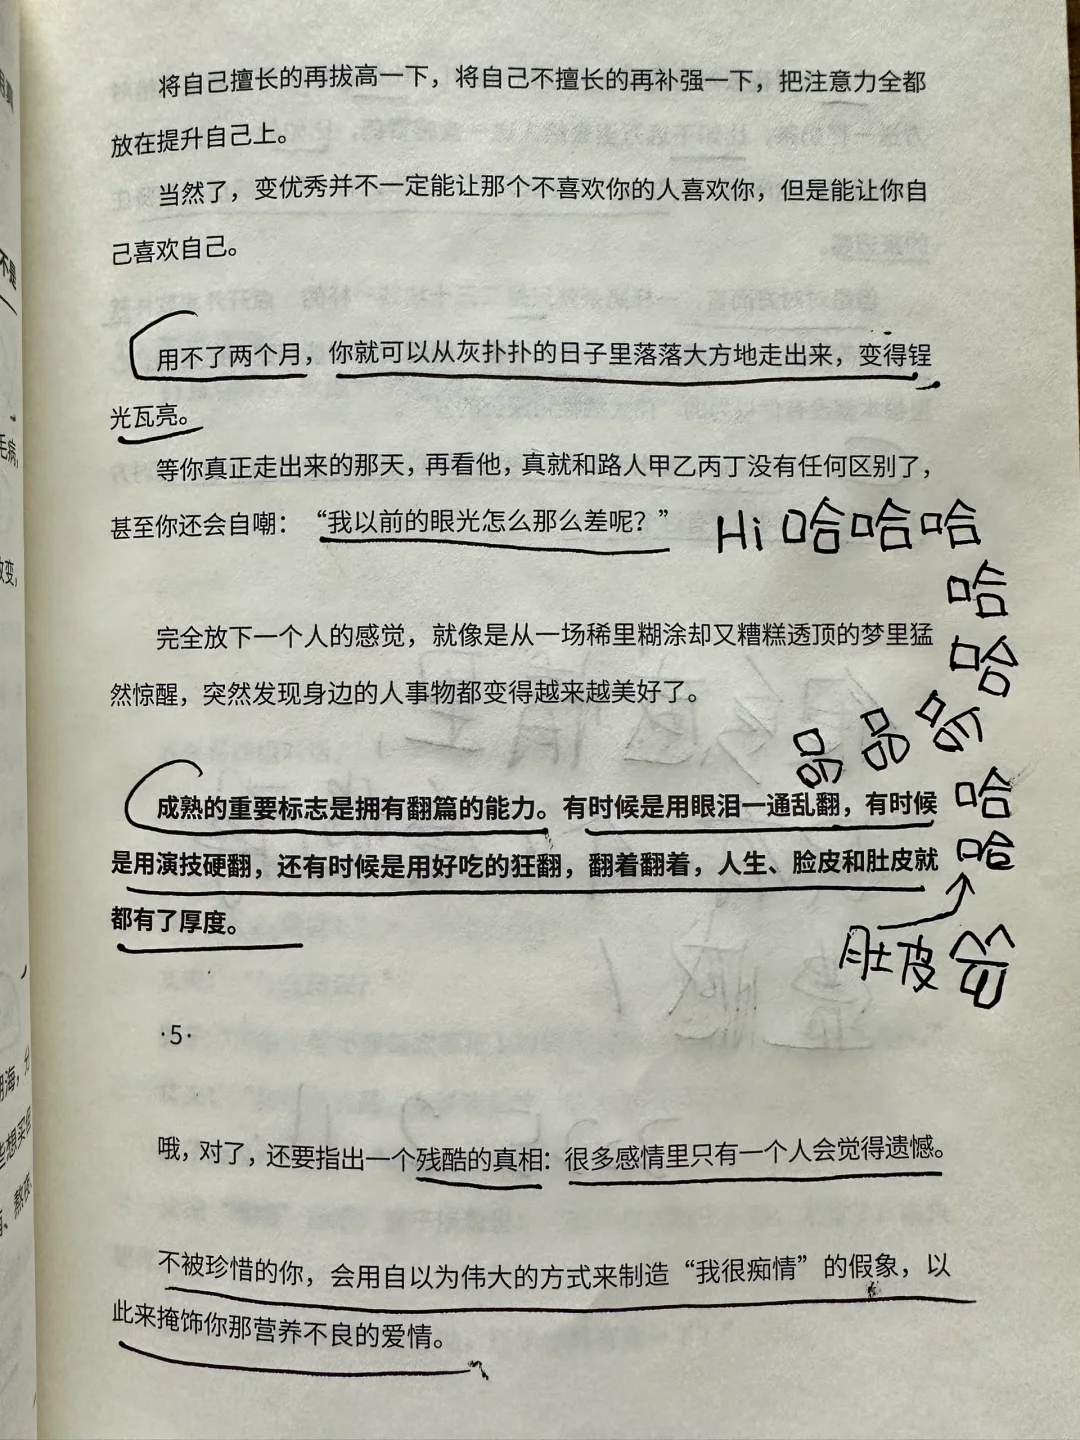 将自己擅长的再拔高一下，将自己不擅长的再补强一下，把注意力全都
放在提升自己上。
当然了，变优秀并不一定能让那个不喜欢你的人喜欢你，但是能让你自
己喜欢自己。
用不了两个月，你就可以从灰扑扑的日子里落落大方地走出来，变得锃
光瓦亮。
等你真正走出来的那天，再看他，真就和路人甲乙丙丁没有任何区别了，
甚至你还会自嘲：“我以前的眼光怎么那么差呢？”
Hi 哈哈哈
哈
哈
完全放下一个人的感觉，就像是从一场稀里糊涂却又糟糕透顶的梦里猛
然惊醒，突然发现身边的人事物都变得越来越美好了。
哈
哈
成熟的重要标志是拥有翻篇的能力。有时候是用眼泪一通乱翻，有时候
是用演技硬翻，还有时候是用好吃的狂翻，翻着翻着，人生、脸皮和肚皮就
都有了厚度。
肚皮
·5·
哦，对了，还要指出一个残酷的真相：很多感情里只有一个人会觉得遗憾。
不被珍惜的你，会用自以为伟大的方式来制造“我很痴情”的假象，以
此来掩饰你那营养不良的爱情。